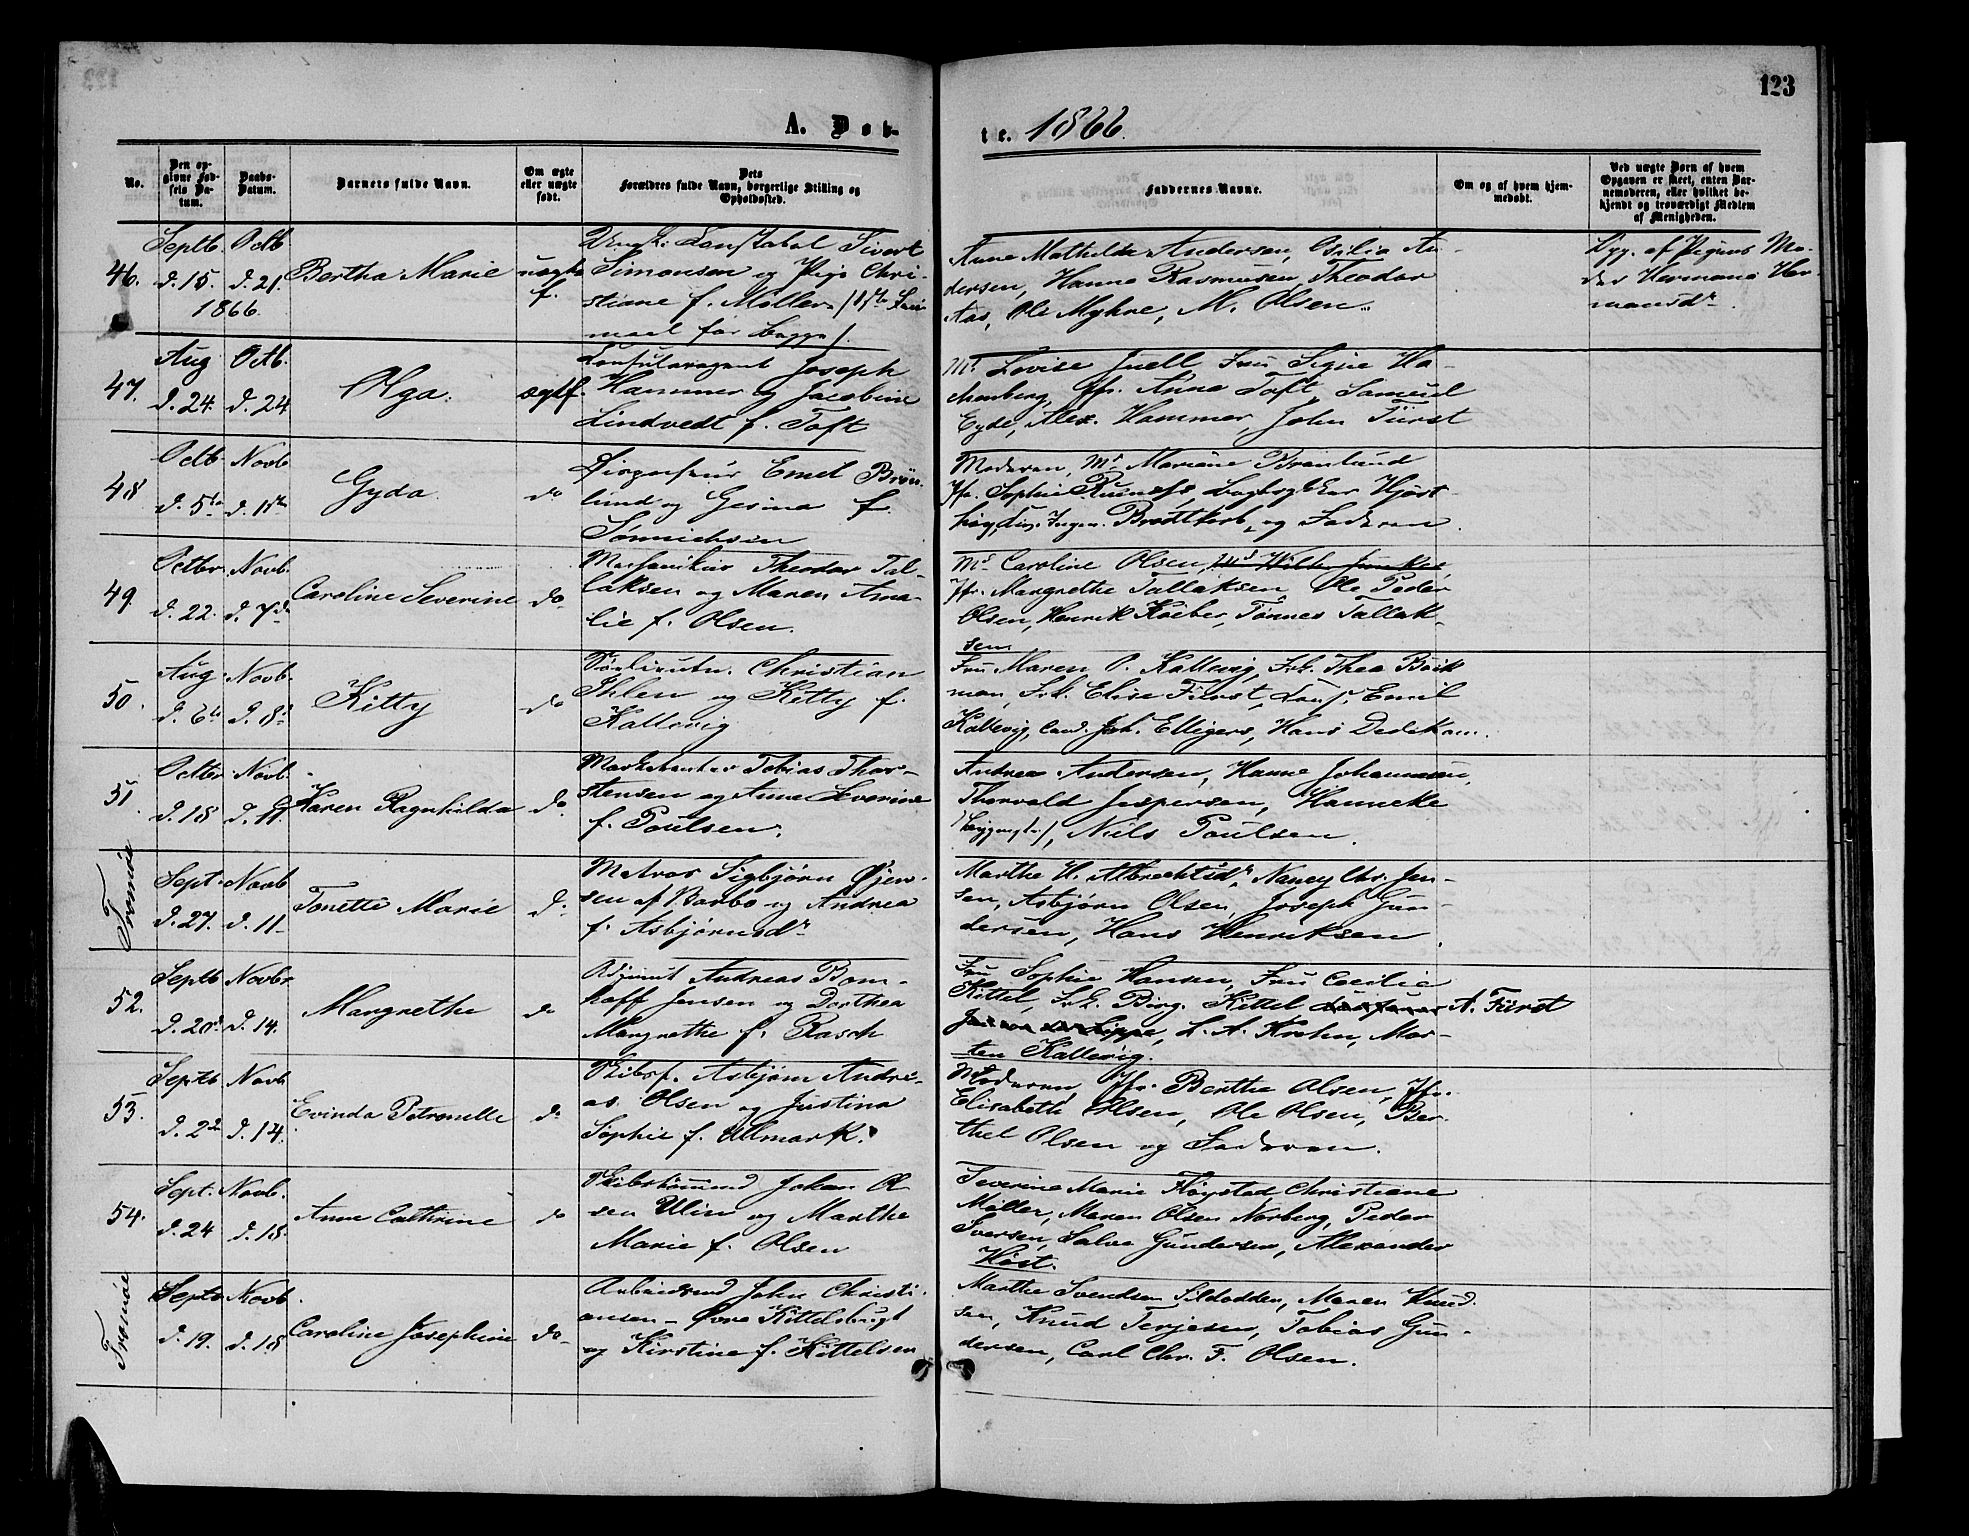 123
A. Døb-
te. 1866.
No.
Den op-
givne Fød-
sels Da-
tum.
Daabs-
Datum.
Barnets fulde Navn.
Om ægte
eller uægte
født.
Dets
Forældres fulde Navn, borgerlige Stilling og
Opholdssted.
Faddernes Navne.
Om og af hvem hjem-
medøbt.
Ved uægte Børn af hvem
Opgaven er skeet, enten Bar-
nemoderen, eller hvilket be-
kjendt og troværdigt Medlem
af Menigheden.
46.
Septb.
d. 15.
1866
Octb
d. 21.
Bertha Marie
uægte
f.
Constabel Sivert
Simonsen og Pige Chri-
stiane f. Møller
maal for begge).
Anne Mathilde Andersen, An-
dersen, Hanne Rasmusen, Theodor
Aas, Ole Myhre, M. Olsen.
Opg. af Pigens Mo-
der Hermana Her-
mansdr.
47.
Aug
d. 24.
Octb.
d. 24
Olga.
ægtf.
Consularagent Joseph
Hammer og Jacobine
Lindvedt f. Toft
Md. Lovise Juell, Fru Signe
Jfr. Anne Toft, Samuel
Eyde, Alex. Hammer, John Fürst
48
Octb
d. 5te
Novb
d. 1ste
Gyda.
do
Emil Brøn-
lund og Gesina f.
Sønnichsen
Moderen, Md. Mariane Brønlund
Jfr. Sophie
Brodtkorb, og Faderen.
49.
Octbr
d. 22.
Novb.
d. 7de
Caroline Severine
do
Theodor Tal-
laksen og Maren Ama-
lie f. Olsen.
Md. Caroline Olsen,
Jfr. Margrethe Tallaksen, Ole Peder
Olsen, Henrik Køeber, Tønnes Tallak-
sen
50.
Aug
d. 6te
Novb.
d. 8de
Kitty
do
Christian
Ihlen og Kitty f.
Kallevig
Fru Maren P. Kallevig, Frk. Thea
Frk. Elise Fürst, Cons. Emil
Kallevig, Cand. Joh. Elligers, Hans Dedekam.
51.
Octbr
d. 18
Novb.
d. 11.
Karen Ragnhilda
do
Tobias Thor-
stensen og Anne Severine
f. Poulsen.
Andrea Andersen, Hanne Johannesen,
Thorvald Jespersen, Hanneke
Nils Poulsen.
Tromøe
Sept.
d. 27.
Novb
d. 11
Tonette Marie
do
Matros Sigbjørn Øjen-
sen af Barbo og Andrea
f. Asbjørnsdr
Marthe H. Albrechtsdr, Nancy Chr. Jen-
sen, Asbjørn Olsen, Joseph Gun-
dersen, Hans Henriksen.
52.
Septb
d. 28
Novbr
d. 14.
Margrethe
do
Adjunct Andreas Bom-
hoff Jensen og Dorthea
Margrethe f. Rasch
Fru Sophie Hansen, Fru Cecilie
Kittel, Frk. Birg. Kittel A. Fürst
L. A. Krohn, Mor-
ten Kallevig.
53.
Septb
d. 22
Novb
d. 14.
Evinda Petronelle
do
Skibsf. Asbjørn Andre-
as Olsen og Justina
Sophie f. Ulmark.
Moderen, Jfr. Berthe Olsen, Jfr.
Elisabeth Olsen, Ole Olsen, Ber-
thel Olsen og Faderen.
54.
Sept.
d. 24
Novb.
d. 18.
Anne Cathrine
do
Skibstømmd Johan Ol-
sen Ulin og Marthe
Marie f. Olsen
Severine Marie Fløystad, Christiane
Møller, Maren Olsen Norberg, Peder
Iversen, Salve Gundersen, Alexander
Høst.
Tromøe
Septb
d. 19.
Novb.
d. 18
Caroline Josephine
do
Arbeidsmd John Christi-
ansen - Øvre Kittelsbugt
og Kirstine f. Kittelsen
Marthe Svendsen Sildodden, Maren Knud-
sen, Knud Terjesen, Tobias Gun-
dersen, Carl Chr. F. Olsen.